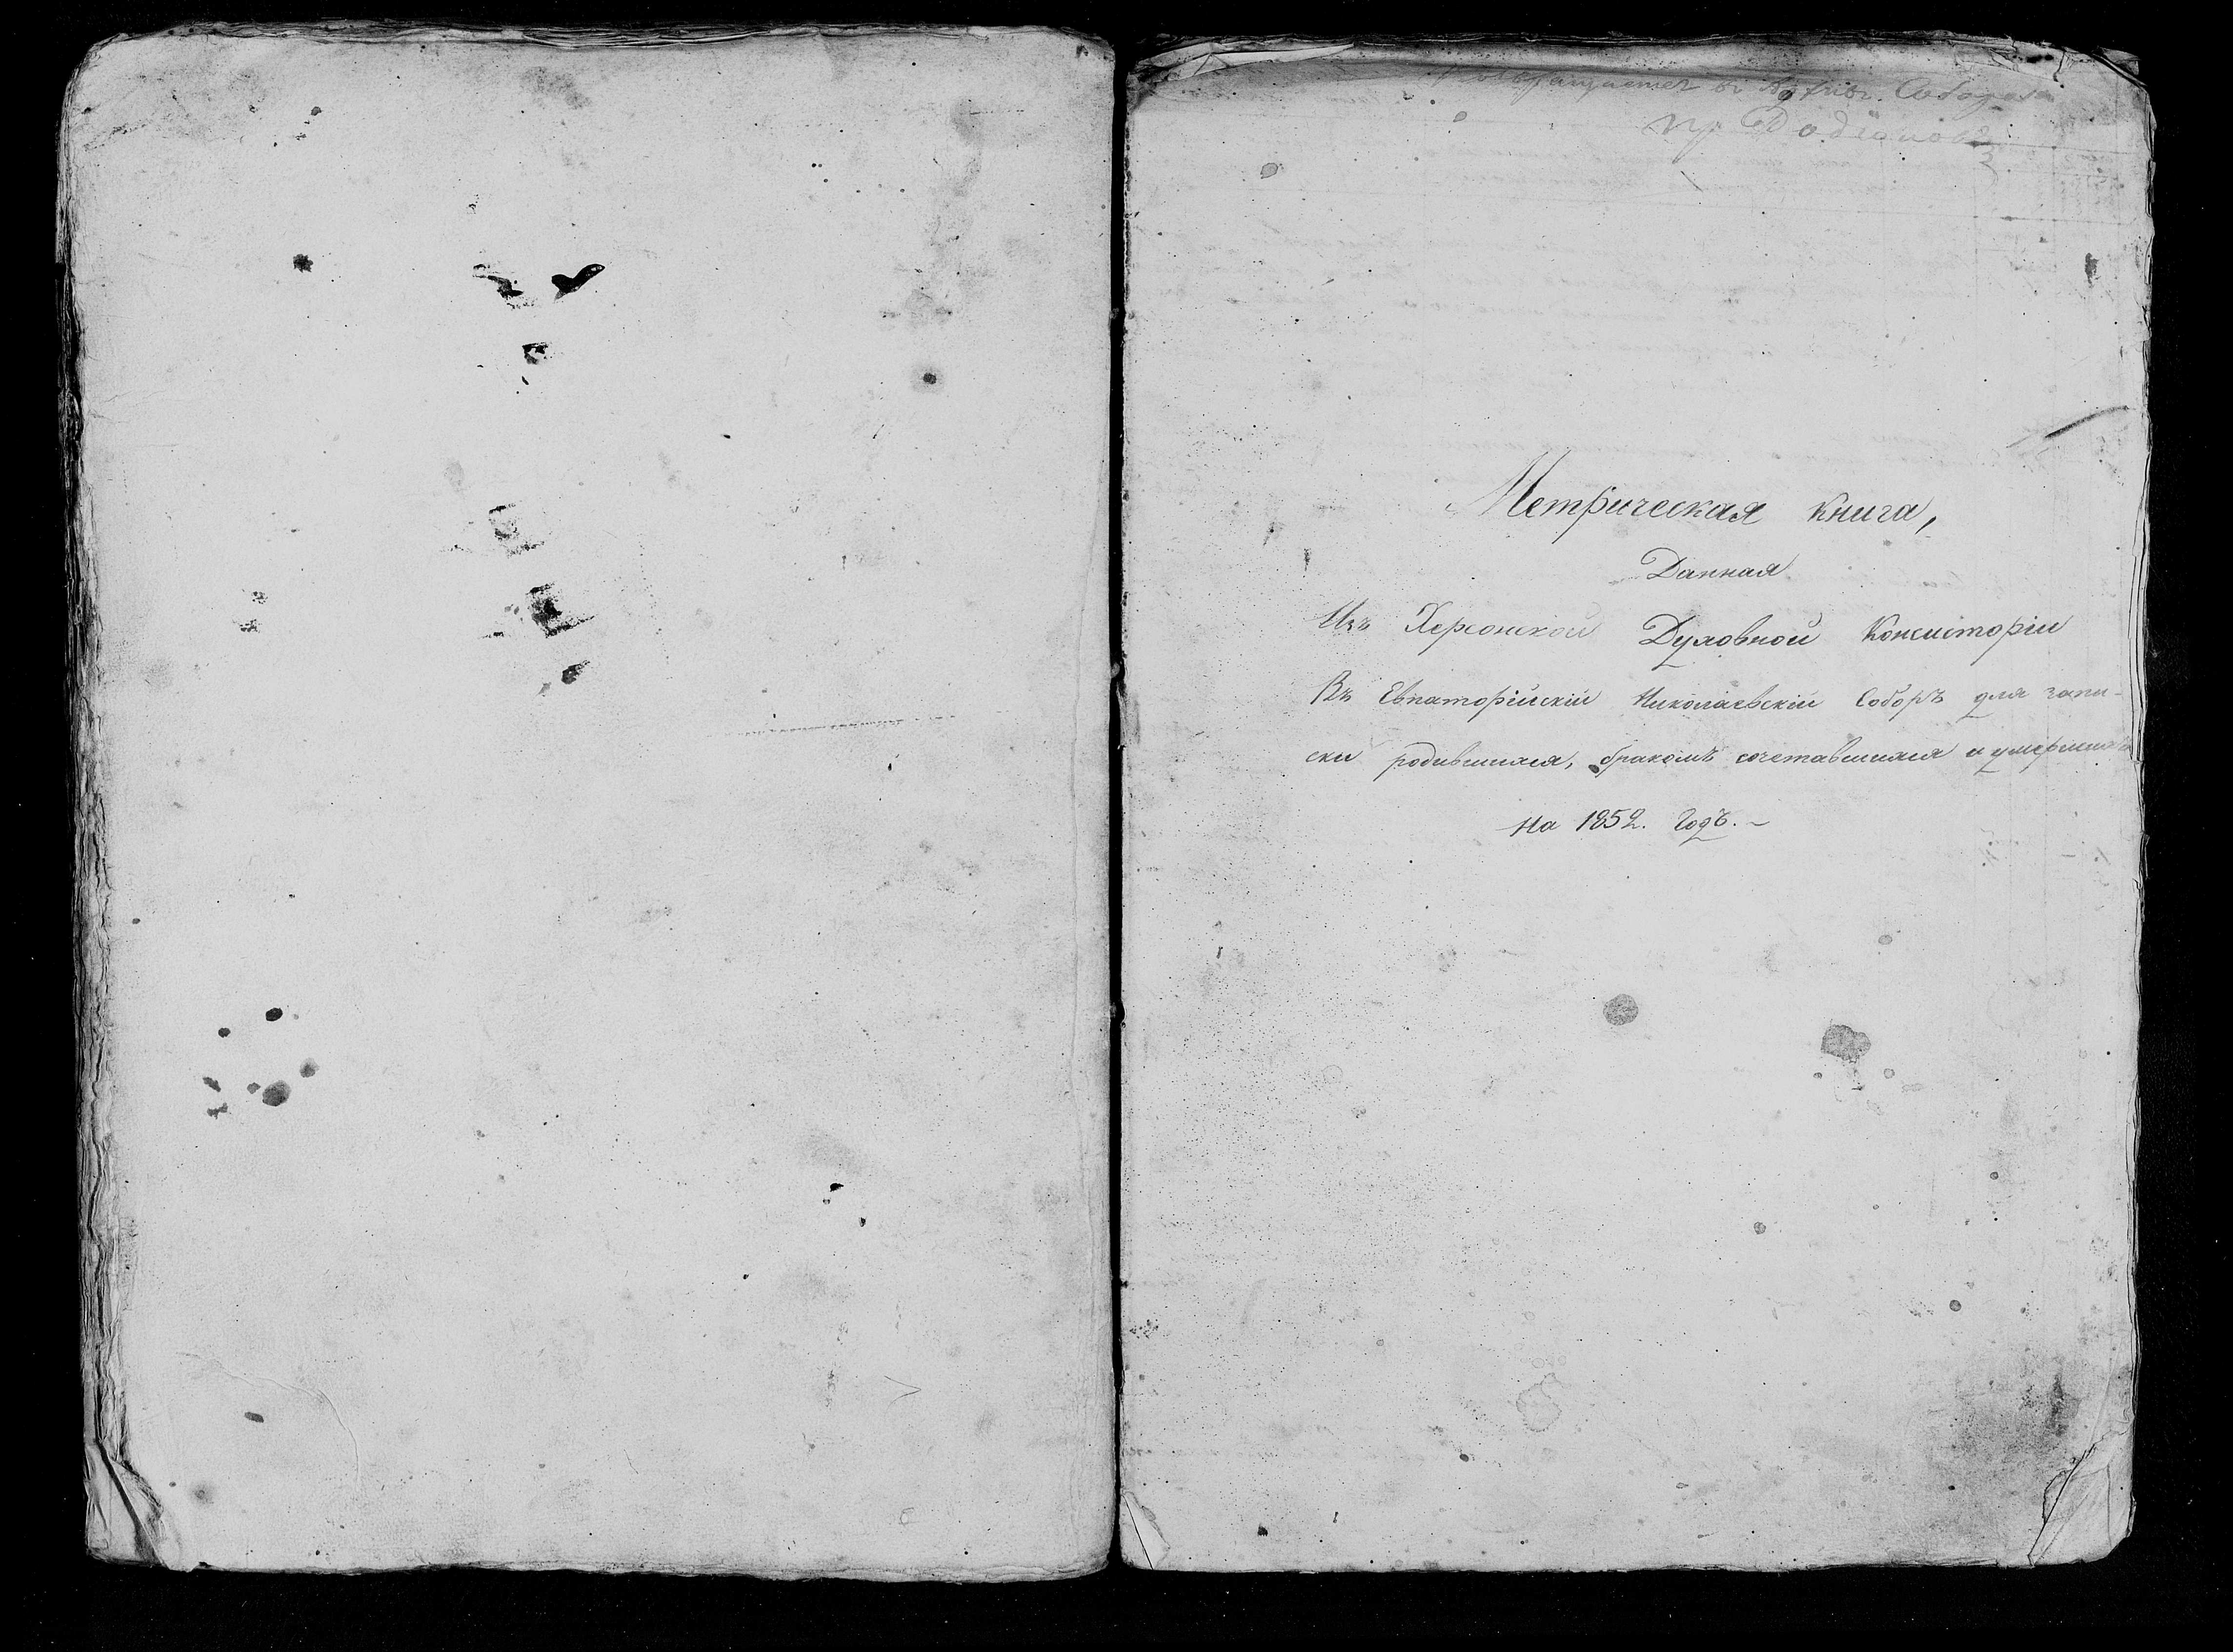 Метрическая книга,
Данная
Изъ Херсонской Духовной Консисторіи
Въ Евпаторійскій Николаевскій Соборъ для запи-
ски родившихся, бракомъ сочетавшихся и умершихъ
На 1852. Годъ. –